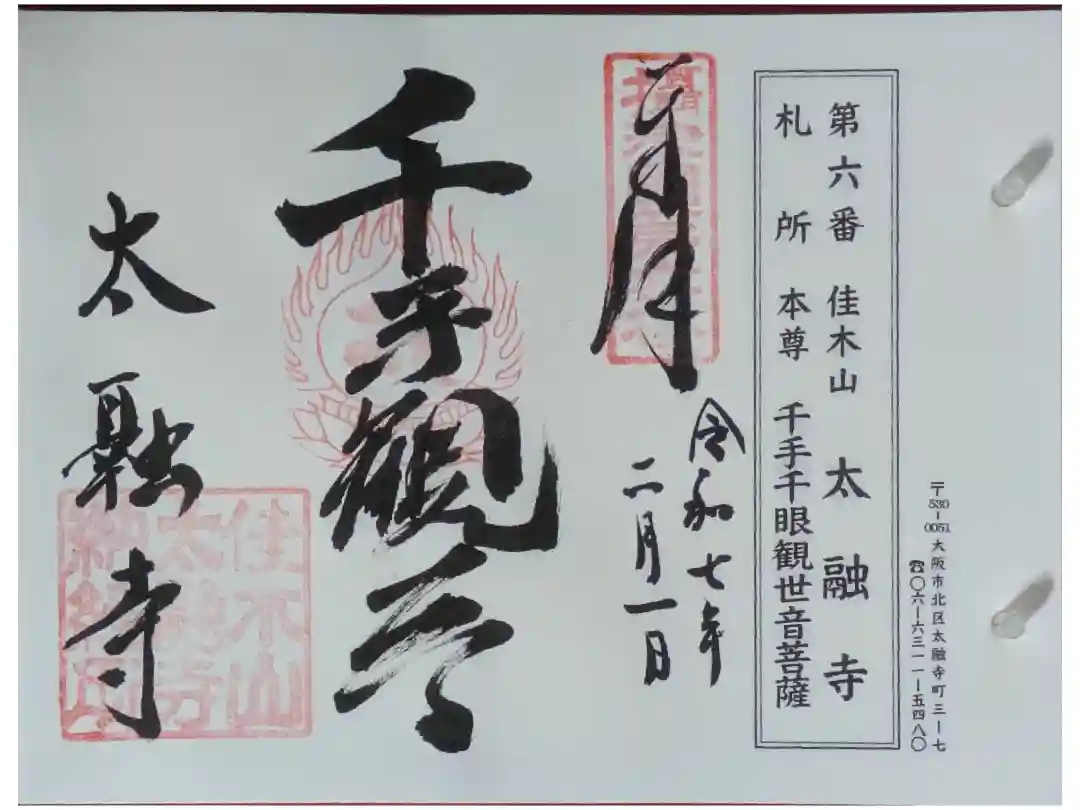 〒530-0051 大阪市北区太融寺町三ー七
☎〇六ー六三一一ー五四八〇
第六番 佳木山 太融寺
札所 本尊 千手千眼観世音菩薩
奉拝
令和七年
二月一日
千手観音
太融寺
佳木山
太融寺
納経印